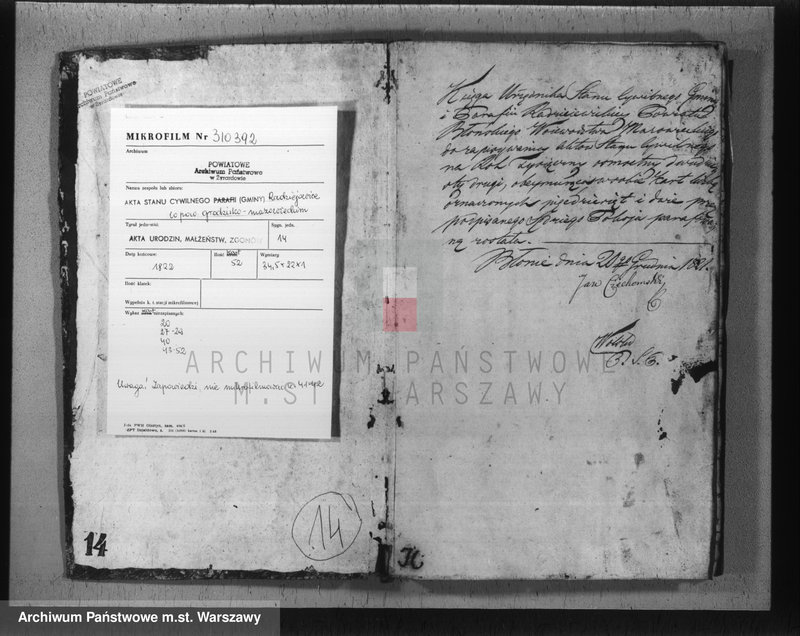 POWIATOWE
Archiwum Państwowe
w Żyrardowie
MIKROFILM Nr 310392
Archiwum
POWIATOWE
Archiwum Państwowe
w Żyrardowie
Nazwa zespołu lub zbioru:
AKTA STANU CYWILNEGO PARAFII (GMINY) Radziejowice
w pow. grodzisko-mazowieckim
Tytuł jedn.
Sygn. jedn.
AKTA URODZIN, MAŁŻEŃSTW, ZGONÓW
14
Daty końcowe:
Ilość
Wymiary
1822
52
34,5×22×1
Ilość klatek:
Wypełnia k. t. stacji mikrofilmowej
Wykaz
20
27-28
40
43-52
Uwaga! Zapowiedzi, nie mikrofilmować
14
14
Księga Urzędnika Stanu Cywilnego Gminy
i Parafii Radziejowickiej Powiatu
Błońskiego Województwa Mazowieckiego
do zapisywania Aktów Stanu Cywilnego
na Rok Tysiączny ośmsetny dwudziesty
drugi, obejmująca w sobie kart
pięćdziesiąt i dwie przez
podpisanego Sędziego Pokoju
została.
Błonie dnia 20 Grudnia 1821.
Jan Ciechomski
ARCHIWUM PAŃSTWOWE
M.ST. WARSZAWY
Archiwum Państwowe m.st. Warszawy